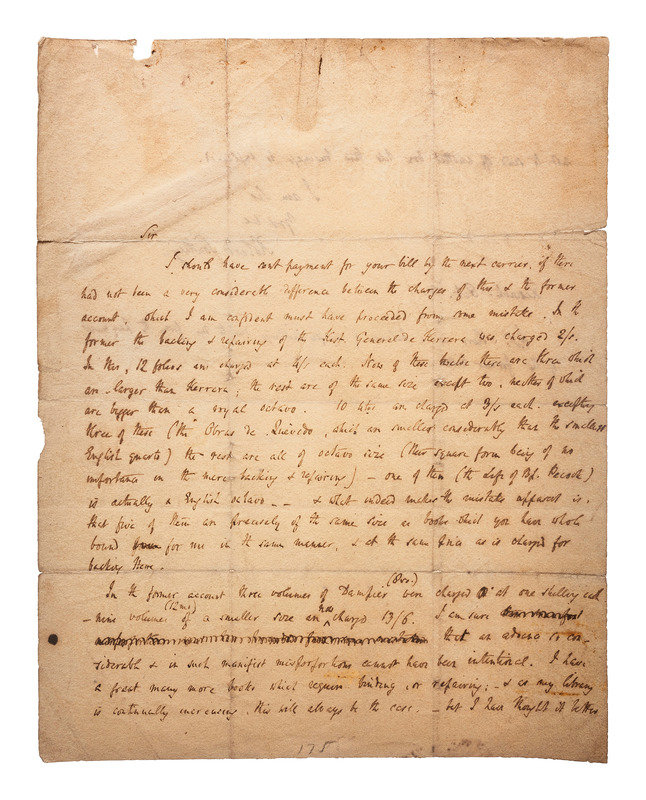 Sir
I should have sent payment for your bill by the next carrier, if there
had not been a very considerable difference between the charges of this & the former
account, which I am confident must have proceeded from some mistake. In the
former the backing & repairing of the Hist. General de Herrera was charged 2/s.
In this, 12 folios are charged at 4/s each. Now of these twelve there are three which
are larger than Herrera; the rest are of the same size except two, neither of which
are bigger than a royal octavo. 10 are charged at 3/s each. excepting
three of these (the Obras de Quevedo, which are smaller considerably than the smallest
English quarto) the rest are all of octavo size (their square form being of no
importance in the mere backing & repairing) – one of them (the Life of Bp. Pecock)
is actually a English octavo – – & what indeed makes the mistake apparent is,
that five of them are precisely of the same size as books which you have whole
bound for me in the same manner, & at the same price as is charged for
backing these.
In the former account three volumes of Dampier (8vo.) were charged at one shilling each
– nine volumes (12mo) of a smaller size are now charged 13/6. I am sure
that an advance so con-
siderable & in such manifest misproportions cannot have been intentional. I have
a great many more books which require binding, or repairing; – & as my library
is continually increasing this will always be the case. – but I have thought it better
175